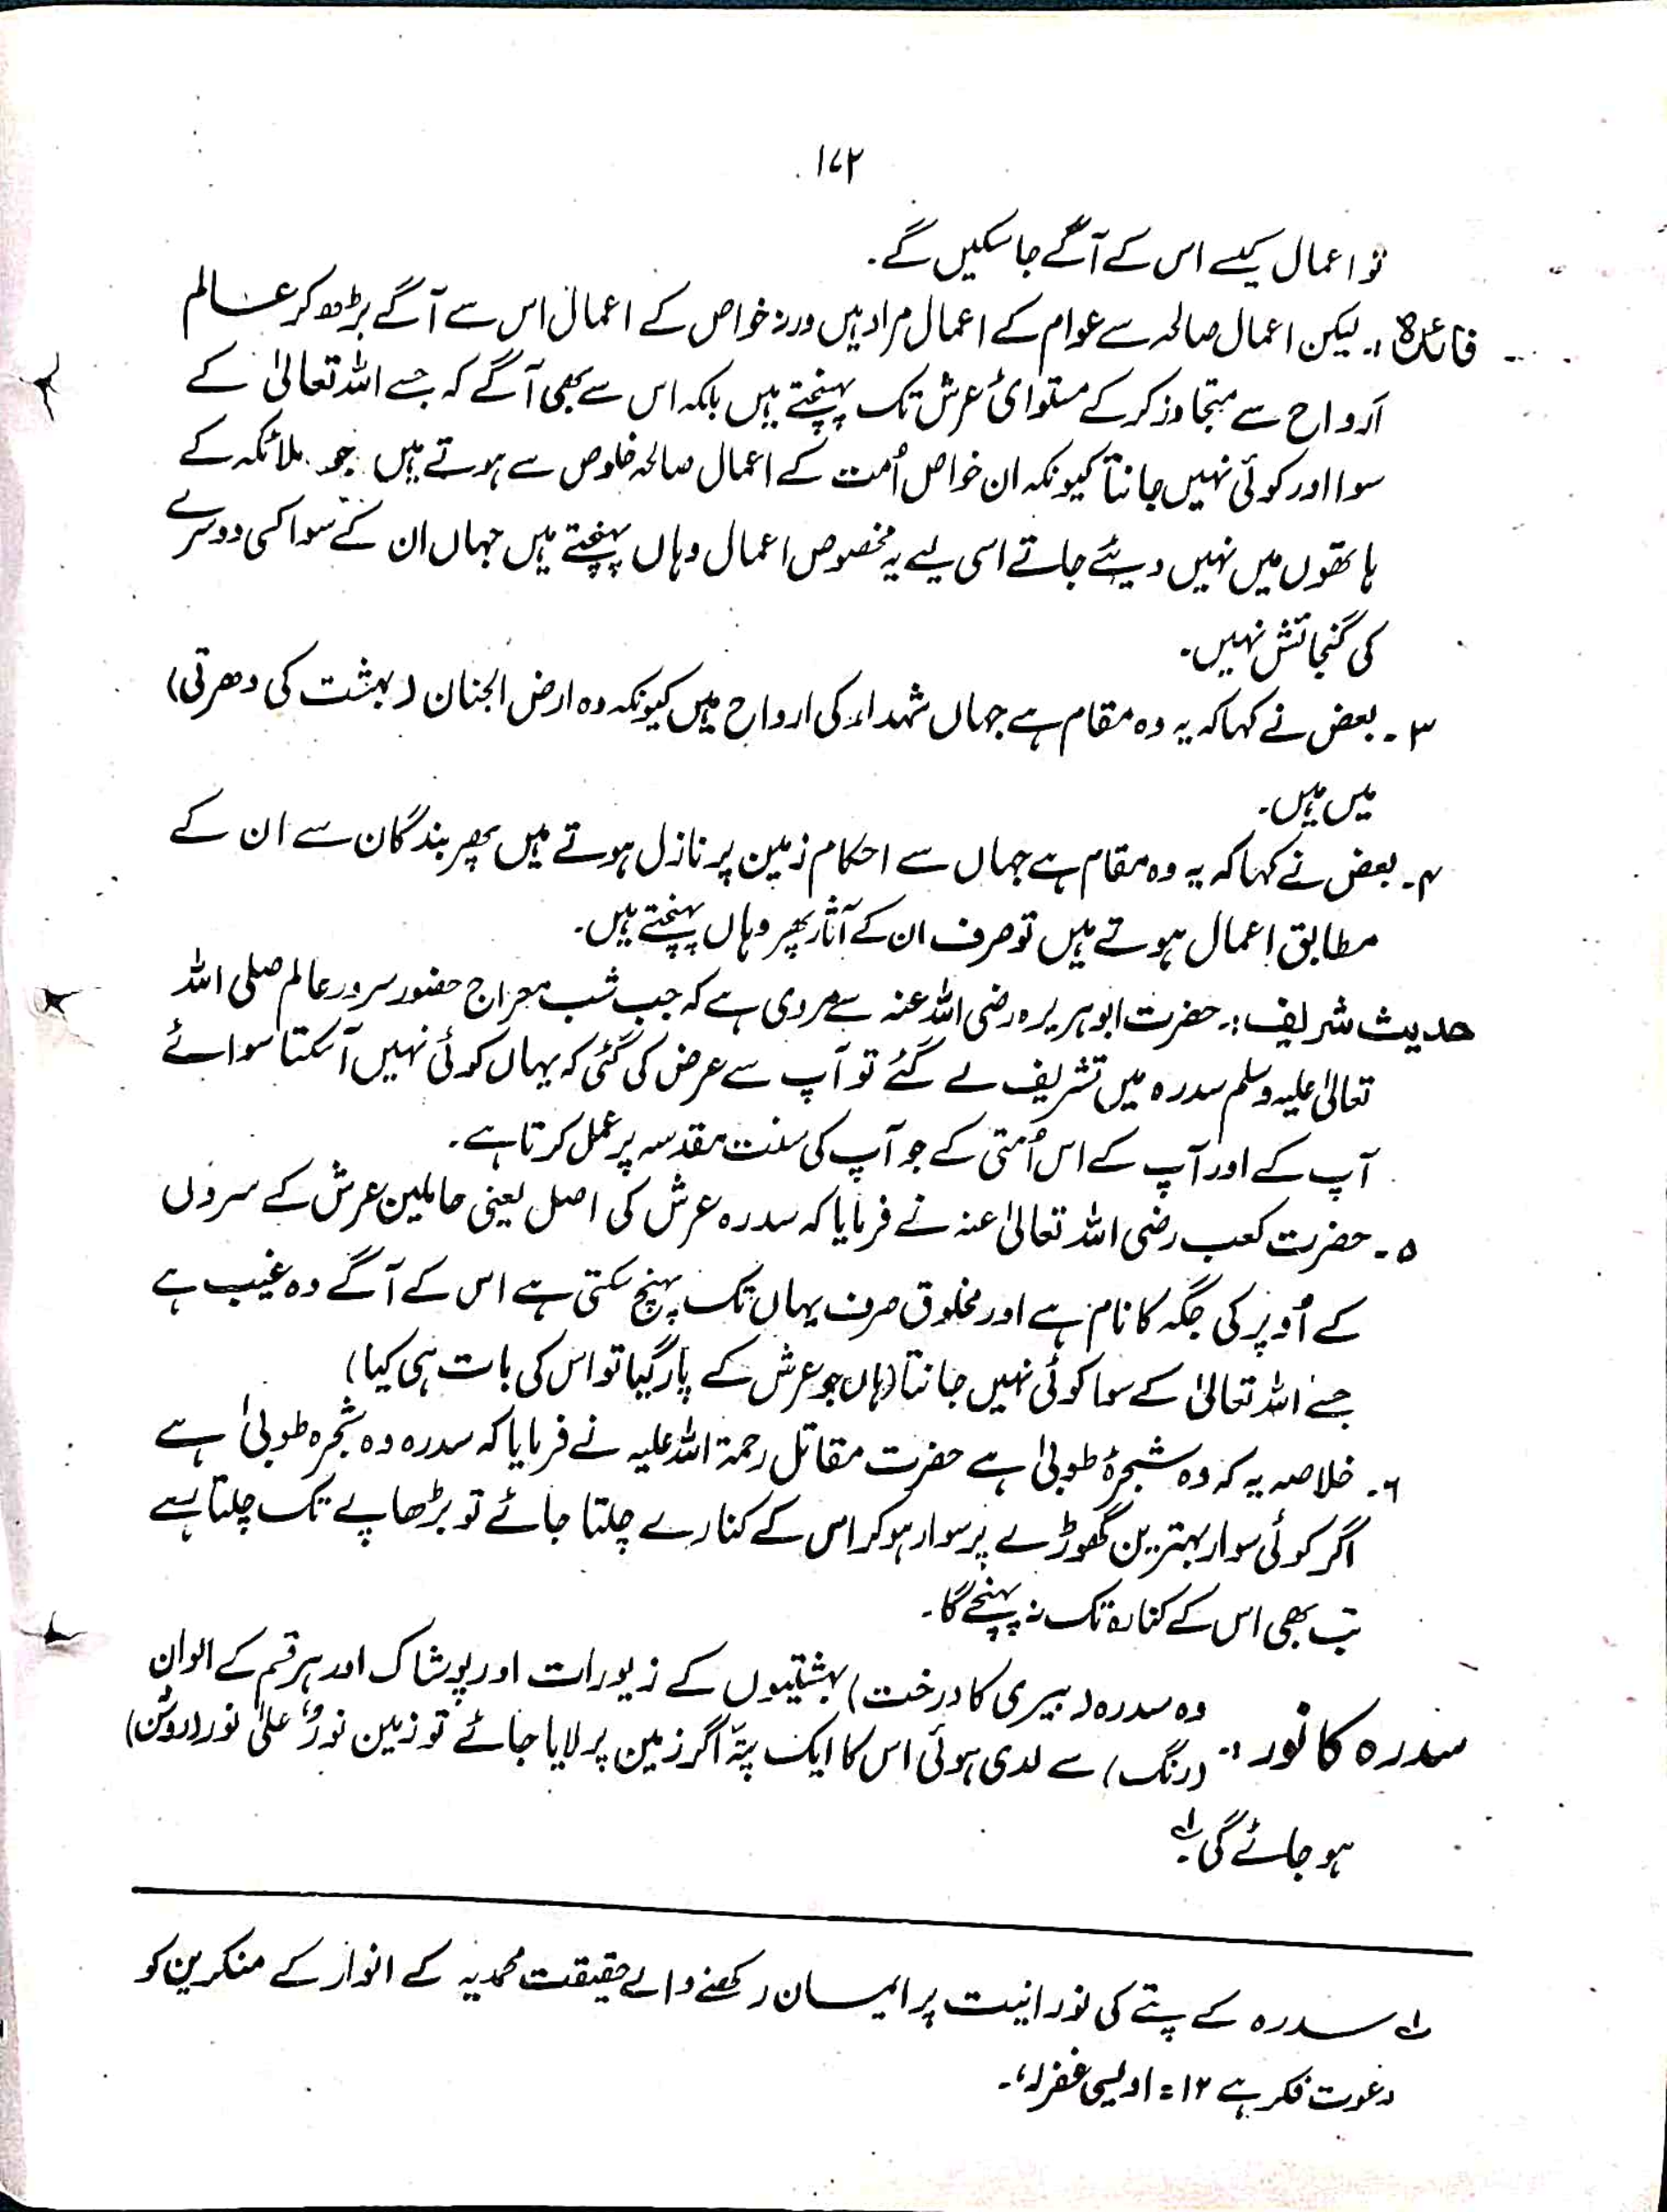 ۱۷۲
تو اعمال کیسے اس کے آگے جا سکیں گے۔
فائدہ :۔ لیکن اعمال صالحہ سے عوام کے اعمال مراد ہیں ورنہ خواص کے اعمال اس سے آگے بڑھ کر عالم
ارواح سے متجاوز کر کے مستوائ عرش تک پہنچتے ہیں بلکہ اس سے بھی آگے کہ جسے اللہ تعالیٰ کے
سوا اور کوئی نہیں جانتا کیونکہ ان خواص اُمت کے اعمال صالحہ خلوص سے ہوتے ہیں جو ملائکہ کے
ہاتھوں میں نہیں دیئے جاتے اسی لیے یہ مخصوص اعمال وہاں پہنچتے ہیں جہاں ان کے سوا کسی دوسرے
کی گنجائش نہیں۔
۳ ۔ بعض نے کہا کہ یہ وہ مقام ہے جہاں شہداء کی ارواح ہیں کیونکہ وہ ارض الجنان (بہشت کی دھرتی)
میں ہیں۔
۴ ۔ بعض نے کہا کہ یہ وہ مقام ہے جہاں سے احکام زمین پر نازل ہوتے ہیں پھر بندگان سے ان کے
مطابق اعمال ہوتے ہیں تو صرف ان کے آثار پھر وہاں پہنچتے ہیں۔
حدیث شریف :۔ حضرت ابو ہریرہ رضی اللہ عنہ سے مروی ہے کہ جب شب معراج حضور سرور عالم صلی اللہ
تعالیٰ علیہ وسلم سدرہ میں تشریف لے گئے تو آپ سے عرض کی گئی کہ یہاں کوئی نہیں آ سکتا سوائے
آپ کے اور آپ کے اس اُمتی کے جو آپ کی سنت مقدسہ پر عمل کرتا ہے۔
۵ ۔ حضرت کعب رضی اللہ تعالیٰ عنہ نے فرمایا کہ سدرہ عرش کی اصل یعنی حاملین عرش کے سروں
کے اُوپر کی جگہ کا نام ہے اور مخلوق صرف یہاں تک پہنچ سکتی ہے اس کے آگے وہ غیب ہے
جسے اللہ تعالیٰ کے سوا کوئی نہیں جانتا (ہاں جو عرش کے پار گیا تو اس کی بات ہی کیا)
۶ ۔ خلاصہ یہ کہ وہ شجرۂ طوبیٰ ہے حضرت مقاتل رحمۃ اللہ علیہ نے فرمایا کہ سدرہ وہ شجرہ طوبیٰ ہے
اگر کوئی سوار بہترین گھوڑے پر سوار ہو کر اس کے کنارے چلتا جائے تو بڑھاپے تک چلتا رہے
تب بھی اس کے کنارہ تک نہ پہنچے گا۔
سدرہ کا نور :۔ وہ سدرہ (بیری کا درخت) بہشتیوں کے زیورات اور پوشاک اور ہر قسم کے الوان
(رنگ) سے لدی ہوئی اس کا ایک پتّہ اگر زمین پر لایا جائے تو زمین نورٌ علیٰ نور (روشن)
ہو جائے گی۔ لہ
لہ سدرہ کے پتے کی نورانیت پر ایمان رکھنے والے حقیقت محمدیہ کے انوار کے منکرین کو
دعوت فکر ہے ۱۲ = اویسی غفرلہ،۔